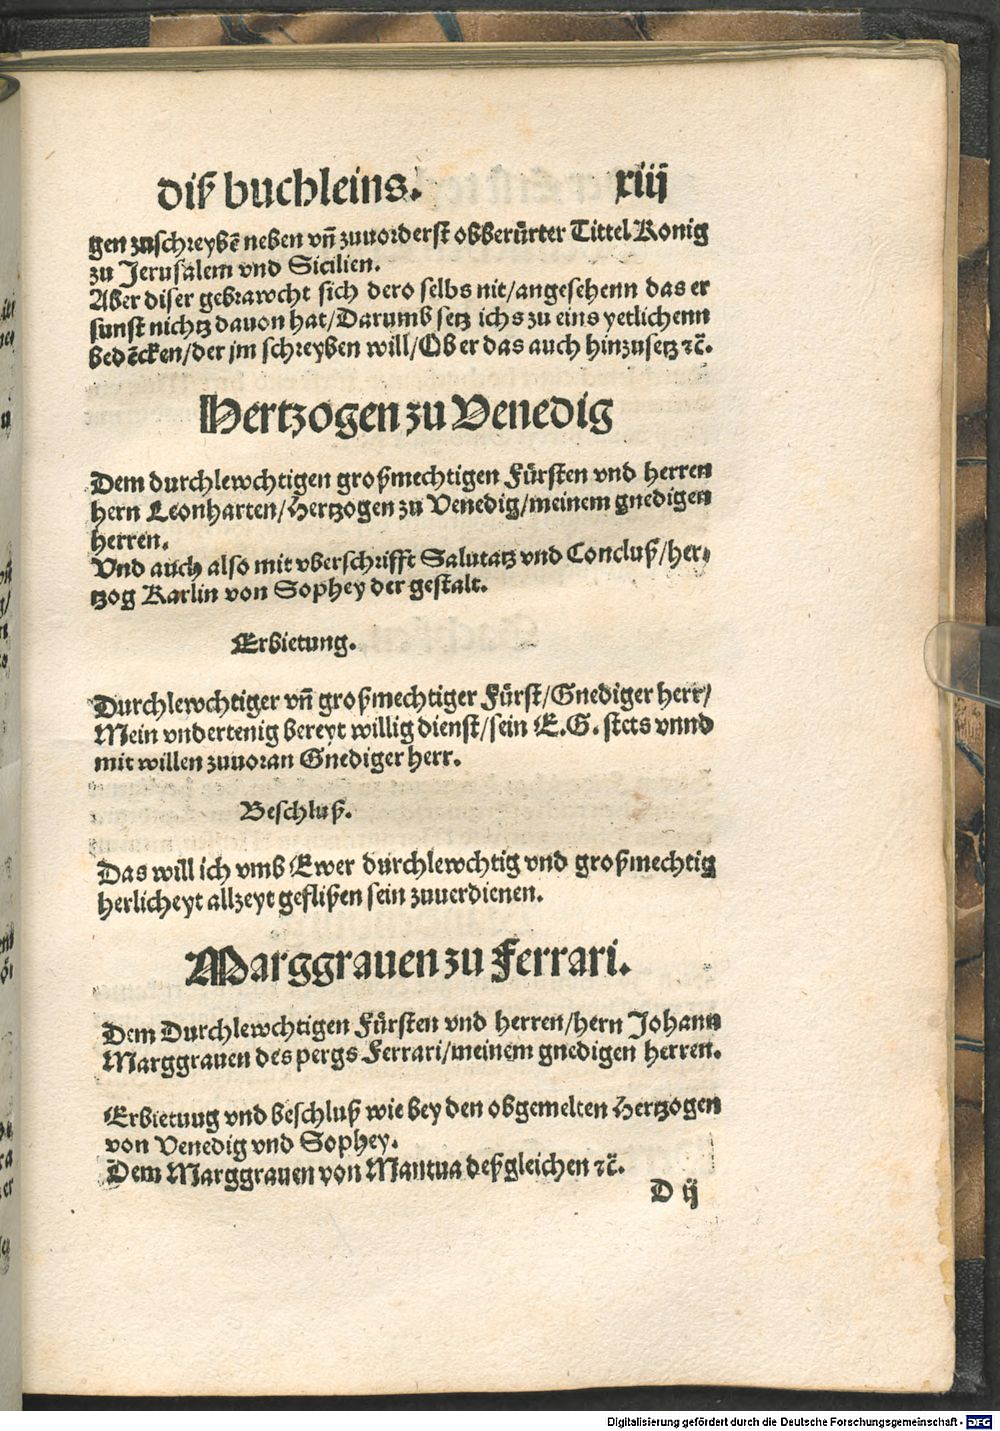 diß buchleins. xiij
gen zuschreybē neben vñ zuuorderst obberürter Tittel Konig
zu Jerusalem vnd Sicilien.
Aber diser gebrawcht sich dero selbs nit/angesehenn das er
sunst nichtz dauon hat/Darumb setz ichs zu eins yetlichenn
bedēcken/der jm schreyben will/Ob er das auch hinzusetz ꝛc̃.
Hertzogen zu Venedig
Dem durchlewchtigen großmechtigen Fürsten vnd herren
hern Leonharten/Hertzogen zu Venedig/meinem gnedigen
herren.
Vnd auch also mit vberschrifft Salutatz vnd Concluß/her⸗
tzog Karlin von Sophey der gestalt.
Erbietung.
Durchlewchtiger vñ großmechtiger Fürst/Gnediger herr/
Mein vndertenig bereyt willig dienst/sein E.G. stets vnnd
mit willen zuuoran Gnediger herr.
Beschluß.
Das will ich vmb Ewer durchlewchtig vnd großmechtig
herlicheyt allzeyt geflißen sein zuuerdienen.
Marggrauen zu Ferrari.
Dem Durchlewchtigen Fürsten vnd herren/hern Johann
Marggrauen des pergs Ferrari/meinem gnedigen herren.
Erbietuug vnd beschluß wie bey den obgemelten Hertzogen
von Venedig vnd Sophey.
Dem Marggrauen von Mantua deßgleichen ꝛc̃.
D ij
Digitalisierung gefördert durch die Deutsche Forschungsgemeinschaft - DFG